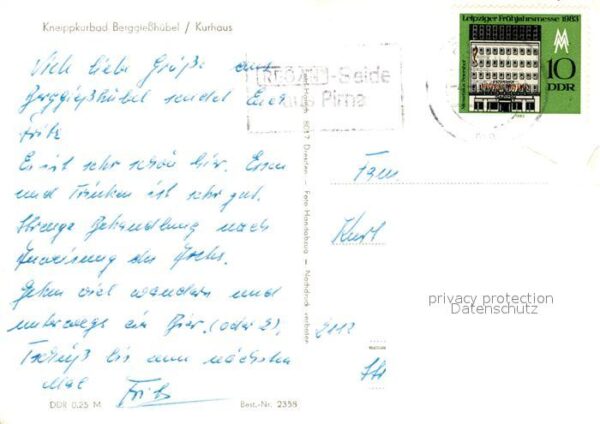 Kneippkurbad Berggießhübel / Kurhaus
Viele liebe Grüße aus
Berggießhübel sendet Euch
Fritz
Es ist sehr schön hier. Essen
und Trinken ist sehr gut.
Strenge Behandlung nach
Anweisung des Arztes.
Gehen viel wandern und
unterwegs ein Bier. (oder 2).
Tschüß bis zum nächsten
Mal Fritz
DDR 0,25 M
Best.-Nr. 2358
8057 Dresden – Foto Handschaua – Nachdruck verboten
-Seide
aus Pirna
Leipziger Frühjahrsmesse 1983
10
DDR
Fam
Kurt
privacy protection
Datenschutz